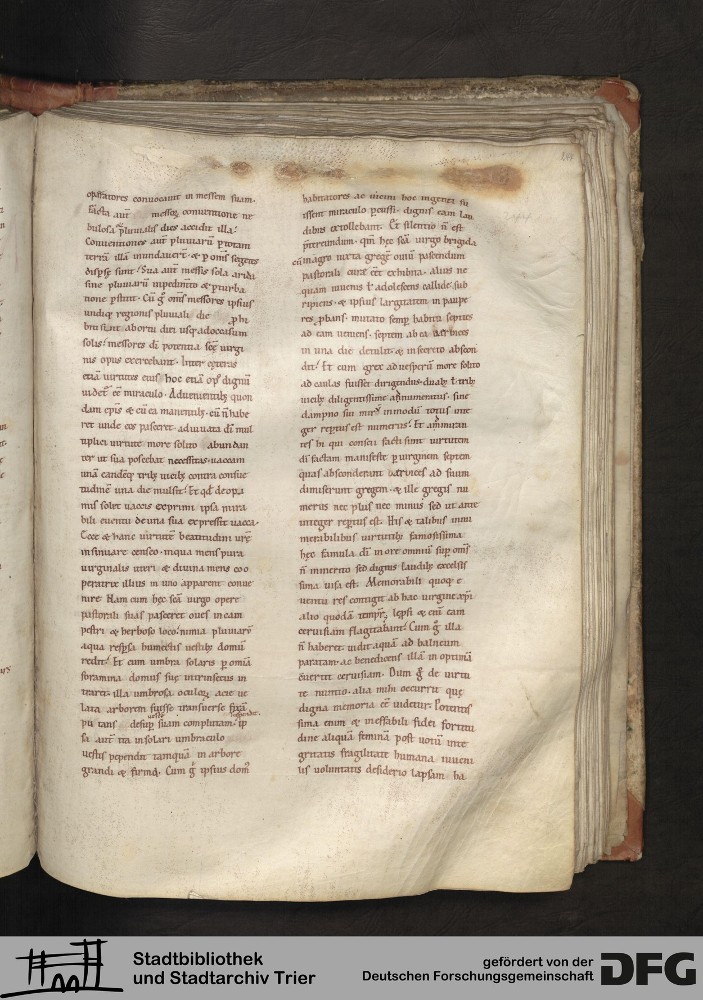 operatores conuocauit in messem suam.
facta aut messoꝝ conuentione ne
bulosa pluuialis dies accidit illa.
Conuentiones aut pluuiarū ptotam
terrā illā inundauert. & p om̄s segetes
disꝑse sunt. Sua aut messis sola arida
sine pluuiarū inpedimto & pturba
none pstitit. Cū ḡ om̄s messores ipsius
undiq; regionis pluuiali die phi
biti st̄ int abortū diei usq; adoccasum
solis. messores dī potentia scē uirgi
nis opus exercebant. Inter ceteras
etiā uirtutes eius hoc etiā op' dignū
uidet̄ ēē miraculo. Aduenientib; quon
dam ep̄is & cū ea manentib;. cū n̄ habe
ret unde eos pasceret. adiuuata dī mul
tiplici uirtute more solito abundan
ter ut sua poscebat necessitas. uaccam
unā candēq; trib; uicib; contra consue
tudinē una die mulsit. Et qd̄ de opti
mis solet uaccis exprimi ipsa mira
bili euentu de una sua expressit uacca.
Ecce & hanc uirtutē beatitudini urē
insinuare censeo. inqua mens pura
uirginalis iuteri & diuina mens coo
peratrix illius in uno apparent conue
nire. Nam cum hec scā uirgo opere
pastorali suas pasceret oues in cam
pestri & herboso loco. nimia pluuiarū
aqua respsa humectis uestib; domū
rediit. Et cum umbra solaris p omīa
foramina domus sue intrinsecus in
traret. illa umbrosa oculoꝝ acie ue
lata arborem fuisse transuerse fixā
putans desup uestē suam complutam. suspendit. ip
sa aut ita in solari umbraculo
uestis pependit tamquā in arbore
grandi & firma. Cum ḡ ipsius dom'
244
habitatores ac uicini hoc ingenti fu
issent miraculo pcussi. dignis eam lau
dibus extollebant. Et silentio n̄ est
ptereundum. qm̄ hec scā uirgo brigida
cū inagro iuxta gregē ouiū pascendum
pastorali curē eēt exhibita. alius ne
quam iuuenis ł adolescens callide sub
ripiens. & ipsius largitatem in paupe
res pbans. mutato semp habitu septies
ad eam ueniens. septem ab ea ueruices
in una die detulit. & in secreto abscon
dit. Et cum grex ad uesperū more solito
ad caulas fuisset dirigendus. duab; ł trib;
uicib; diligentissime annumeratus. sine
dampno sui mirū inmodū totus inte
ger reptus est numerus. Et ammiran
tes hi qui conscii facti sunt uirtutem
dī factam manifeste p uirginem septem
quas absconderant ueruices ad suum
dimiserunt gregem. & ille gregis nu
merus nec plus nec minus sed ut ante
integer reptus est. His & talibus innu
merabilibus uirtutib; famosissima
hec famula dī in ore omnium sup om̄s
n̄ inmerito sed dignis laudib; excelsis
sima uisa est. Memorabili quoq; e
uentu res contigit ab hac uirgine. xp̄i
alio quodā tempr̄. lepsi & eni eam
ceruisiam flagitabant. Cum ḡ illa
n̄ haberet. uidit aquā ad balneum
paratam. ac benedicens illā in optimā
euertit ceruisiam. Dum ḡ de uirtu
te nuntio. alia mihi occurrit que
digna memoria eē uidetur. Potentis
sima enim & ineffabili fidei fortitu
dine aliquā feminā post uotū inte
gritatis fragilitate humana iuueni
lis uoluntatis desiderio lapsam. ha
Stadtbibliothek
und Stadtarchiv Trier
gefördert von der
Deutschen Forschungsgemeinschaft
DFG